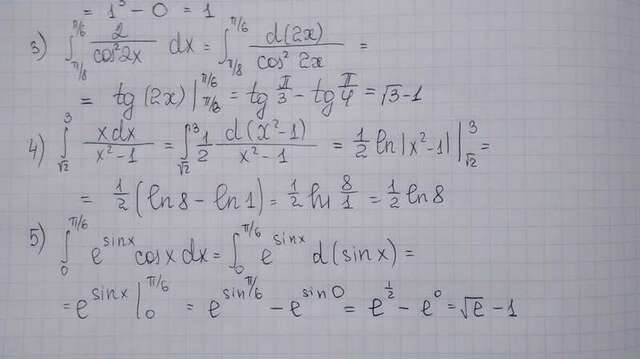 = 1³ − 0 = 1
3) ∫_{π/8}^{π/6} 2/cos²2x dx = ∫_{π/8}^{π/6} d(2x)/cos² 2x =
= tg(2x)|_{π/8}^{π/6} = tg π/3 − tg π/4 = √3 − 1
4) ∫_{√2}^{3} xdx/x²−1 = ∫_{√2}^{3} 1/2 d(x²−1)/x²−1 = 1/2 ln|x²−1| |_{√2}^{3} =
= 1/2 (ln8 − ln1) = 1/2 ln 8/1 = 1/2 ln8
5) ∫_{0}^{π/6} e^{sinx} cosx dx = ∫_{0}^{π/6} e^{sinx} d(sinx) =
= e^{sinx}|_{0}^{π/6} = e^{sin π/6} − e^{sin0} = e^{1/2} − e^{0} = √e − 1